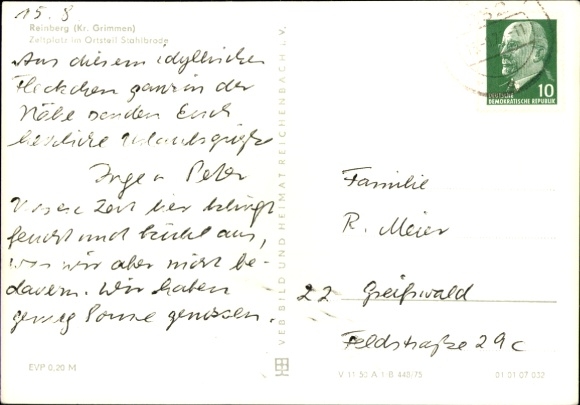 15. 8
Reinberg (Kr. Grimmen)
Zeltplatz im Ortsteil Stahlbrode
Aus diesem idyllischen
Fleckchen ganz in der
Nähe senden Euch
herzliche Urlaubsgrüße
Inge u. Peter
Unsere Zeit hier klingt
feucht und kühl aus,
was wir aber nicht be-
dauern. Wir haben
genug Sonne genossen.
EVP 0,20 M
VEB BILD UND HEIMAT REICHENBACH i. V.
10
DEUTSCHE
DEMOKRATISCHE REPUBLIK
Familie
R. Meier
22 Greifswald
Feldstraße 29c
V 11 50 A 1 B 448/75
01 01 07 032